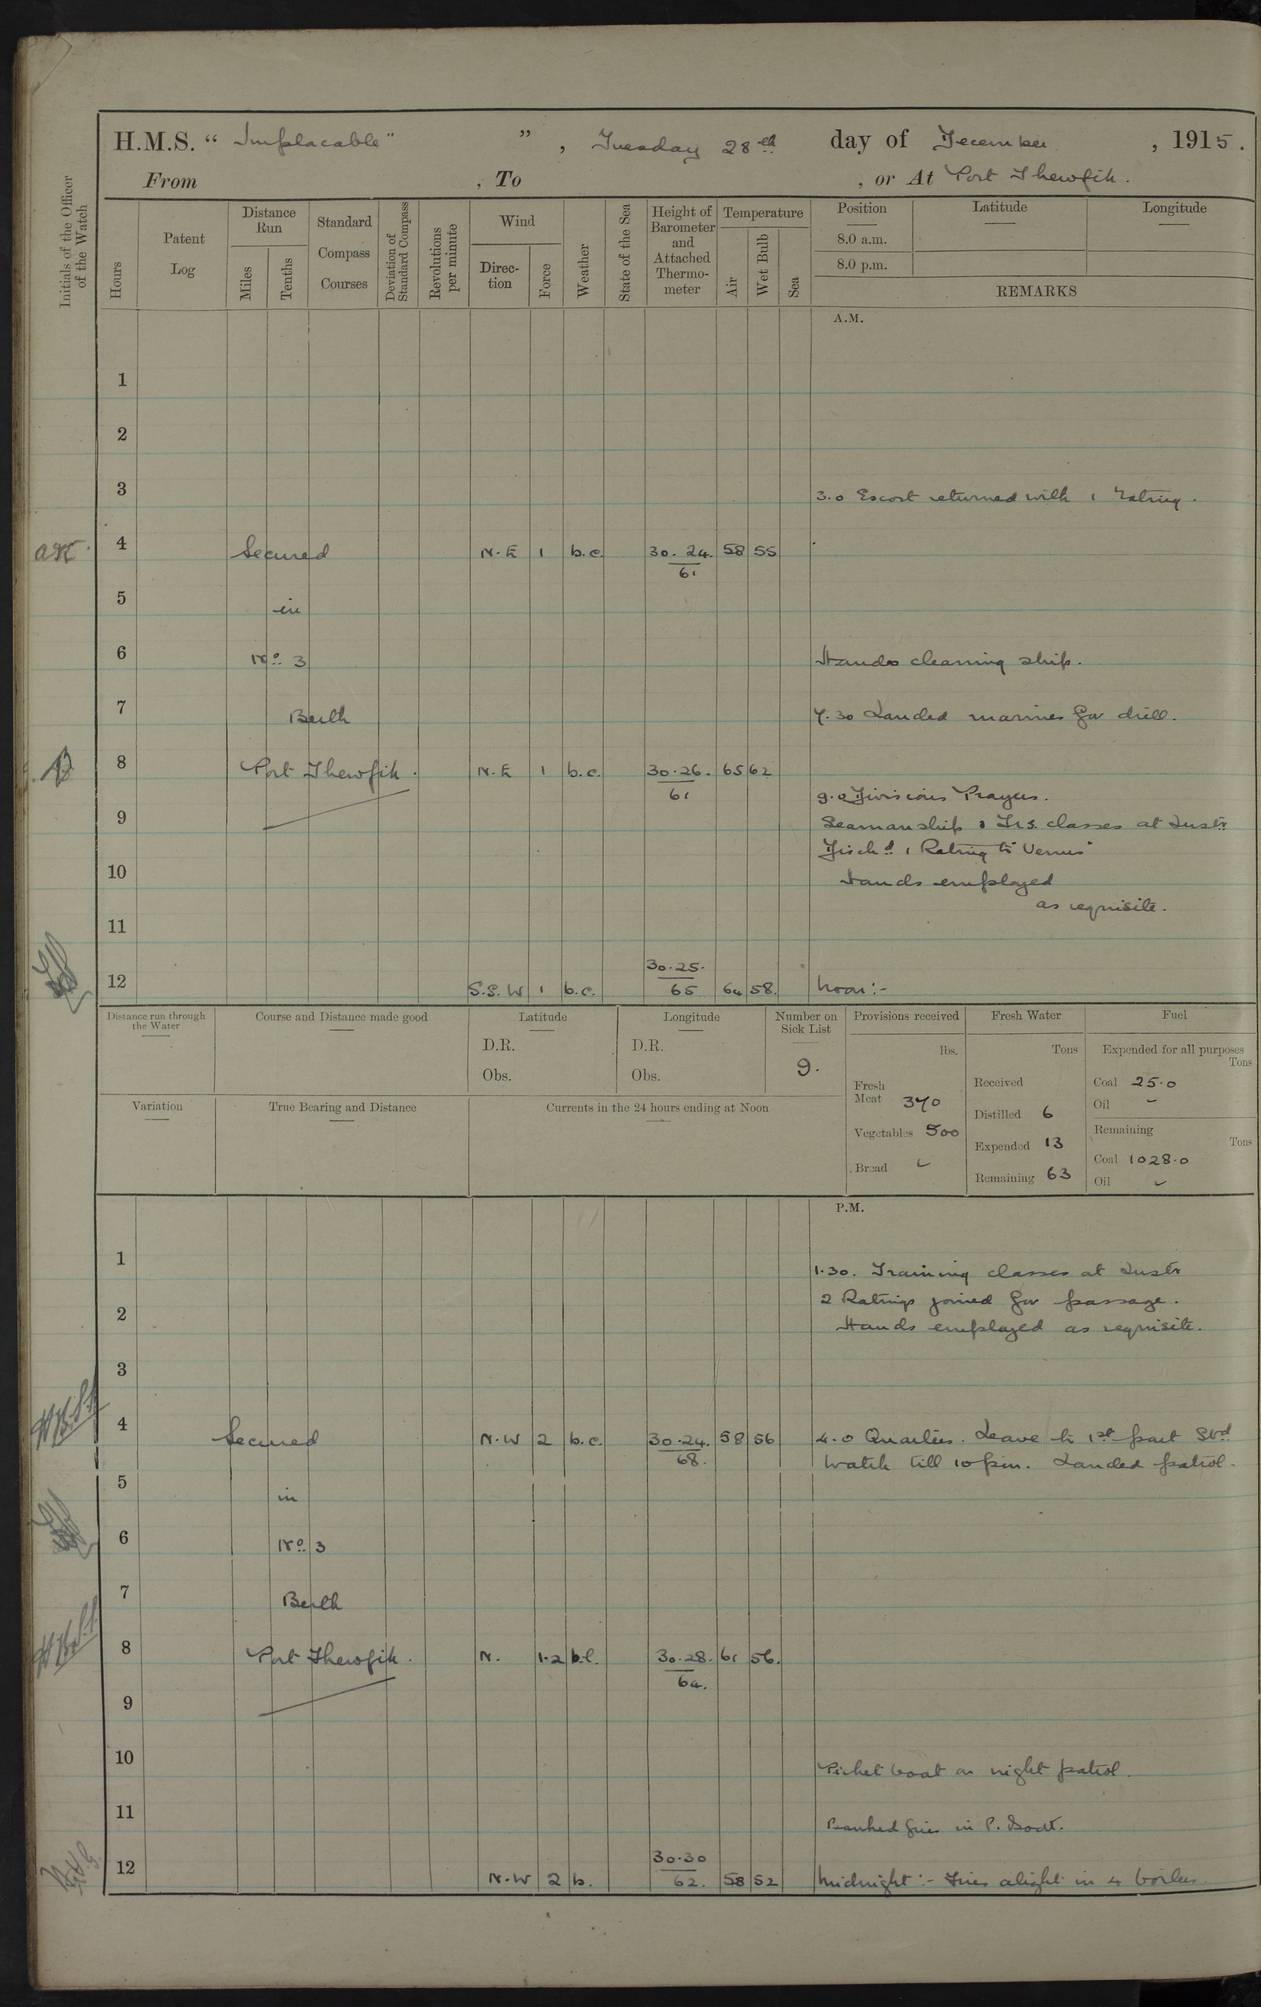 H.M.S. “ Implacable” ” , Tuesday 28th day of December , 1915.
From , To , or At Port Thewfik.
Initials of the Officer of the Watch
Hours
Patent Log
Distance Run
Miles
Tenths
Standard Compass Courses
Deviation of Standard Compass
Revolutions per minute
Wind
Direction
Force
Weather
State of the Sea
Height of Barometer and Attached Thermometer
Temperature
Air
Wet Bulb
Sea
Position Latitude Longitude
8.0 a.m.
8.0 p.m.
REMARKS
A.M.
1
2
3 3.0 Escort returned with 1 Rating.
4 Secured N.E 1 b.c. 30.24. 58 55
61
5 in
6 No 3 Hands cleaning ship.
7 Berth 7.30 Landed marines for drill.
8 Port Thewfik. N.E 1 b.c. 30.26. 65 62
61
9.0 Divisions Prayers.
9 Seamanship & Trs. classes at Instr
Dischd 1 Rating to "Venus"
10 Hands employed
as requisite.
11
30.25.
12 S.S.W 1 b.c. 65 64 58. Noon:-
Distance run through the Water
Course and Distance made good
Latitude
D.R.
Obs.
Longitude
D.R.
Obs.
Number on Sick List
9.
Provisions received
lbs.
Fresh Meat 370
Vegetables 500
Bread ~
Fresh Water
Tons
Received
Distilled 6
Expended 13
Remaining 63
Fuel
Expended for all purposes
Tons
Coal 25.0
Oil ~
Remaining
Tons
Coal 1028.0
Oil ~
Variation
True Bearing and Distance
Currents in the 24 hours ending at Noon
P.M.
1 1.30. Training classes at Instr
2 Ratings joined for passage.
2 Hands employed as requisite.
3
4 Secured N.W 2 b.c. 30.24. 58 56 4.0 Quarters. Leave to 1st part Stbd
68. Watch till 10 pm. Landed patrol.
5 in
6 No 3
7 Berth
8 Port Thewfik. N. 1.2 b.c. 30.28. 61 56.
64.
9
10 Picket boat on night patrol.
11 Banked fires in P. Boat.
30.30
12 N.W 2 b. 62. 58 52 Midnight:- Fires alight in 4 boilers